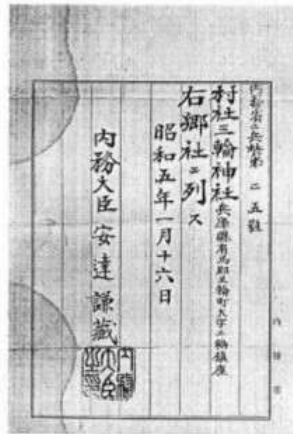 内務省二兵社第二五號
村社三輪神社 兵庫縣有馬郡三輪町大字三輪鎮座
右郷社ニ列ス
昭和五年一月十六日
内務大臣安達謙藏
内務大臣之印
内務省